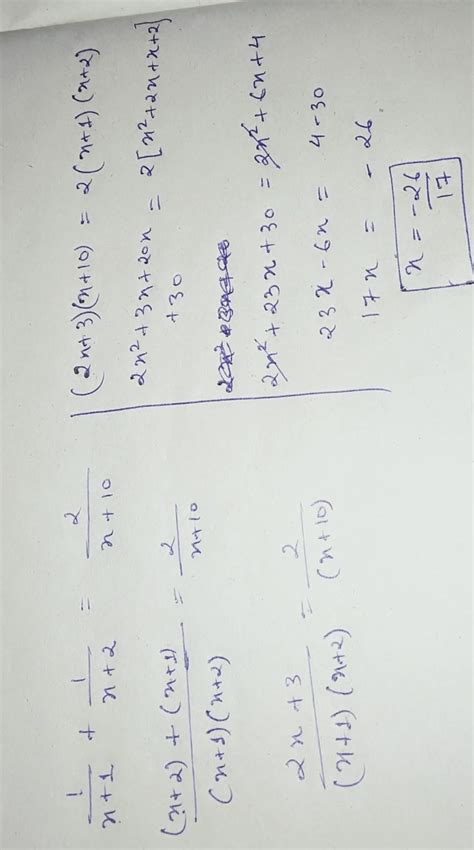 1/(x+1) + 1/(x+2) = 2/(x+10)
((x+2) + (x+1))/((x+1)(x+2)) = 2/(x+10)
(2x+3)/((x+1)(x+2)) = 2/(x+10)
(2x+3)(x+10) = 2(x+1)(x+2)
2x²+3x+20x = 2[x²+2x+x+2]
+30
2x²+23x+30 = 2x²+6x+4
23x-6x = 4-30
17x = -26
x = -26/17